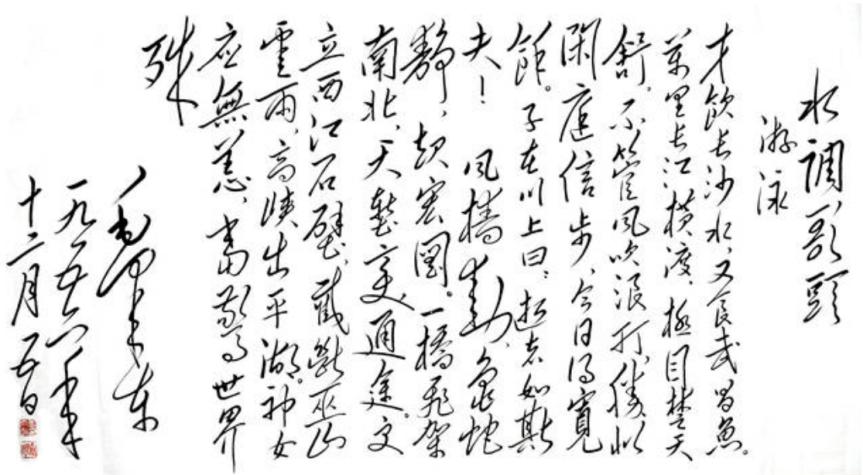 水調歌頭
游泳
才飲长沙水、又食武昌魚。
萬里长江横渡、極目楚天
舒。不管風吹浪打、勝似
閑庭信步、今日得寬
餘。子在川上曰：逝者如斯
夫！風檣動、龜蛇
靜、起宏圖。一橋飛架
南北、天塹变通途。更
立西江石壁、截斷巫山
雲雨、高峡出平湖。神女
应無恙、當驚世界
殊
毛澤東
一九五六年
十二月五日